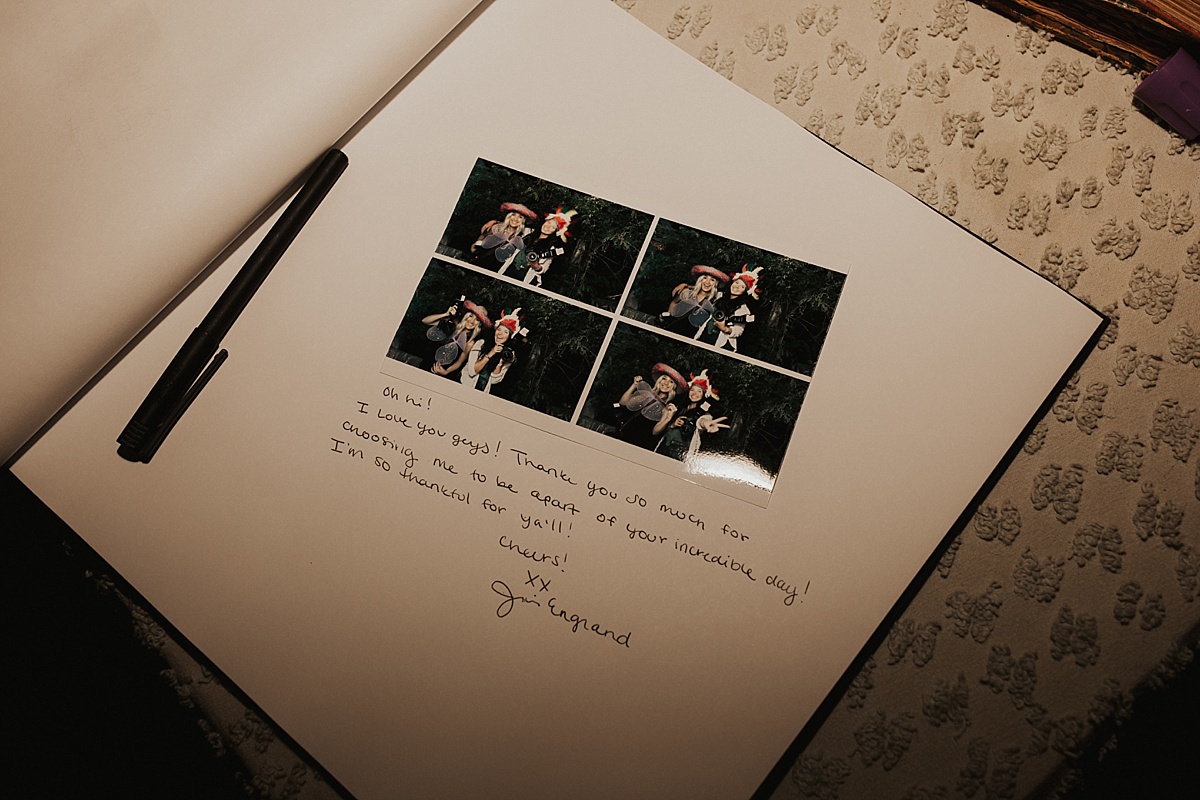 Oh hi!
I love you guys! Thank you so much for
choosing me to be apart of your incredible day!
I'm so thankful for ya'll!
Cheers!
XX
England